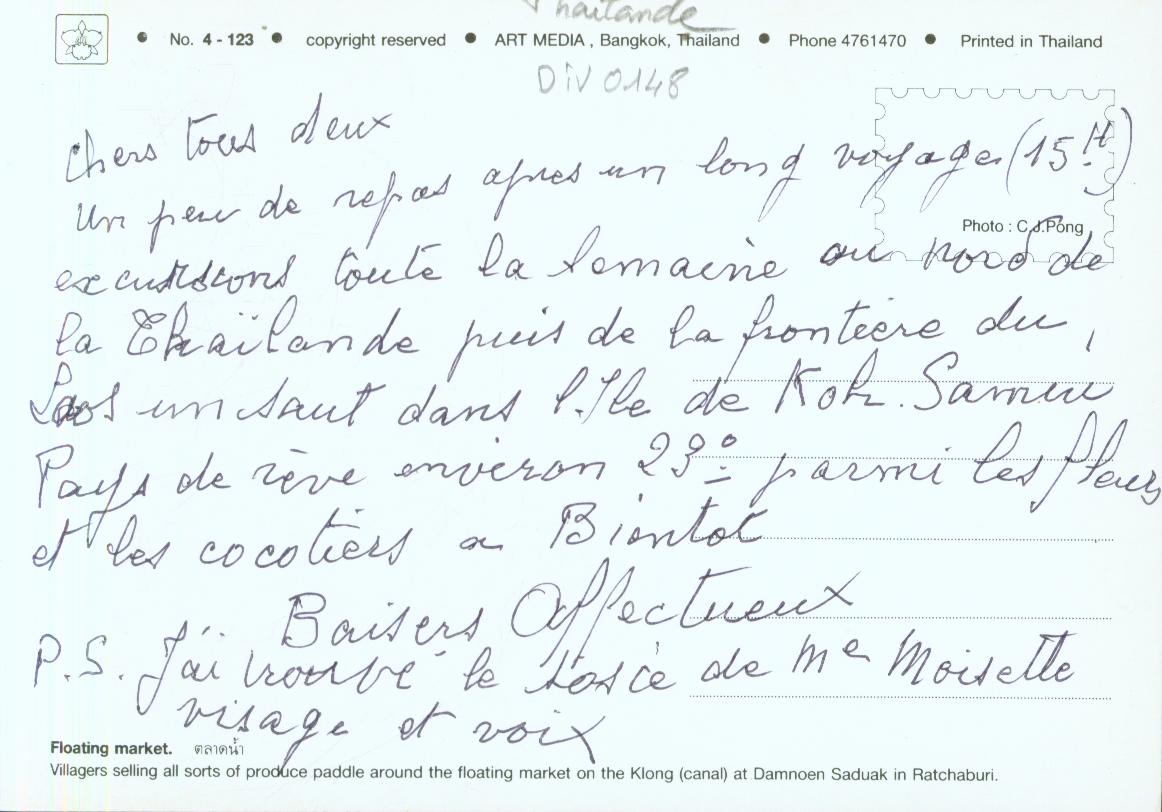 Thailande
No. 4 - 123 • copyright reserved • ART MEDIA , Bangkok, Thailand • Phone 4761470 • Printed in Thailand
DiV 0148
Chers tous deux
Un peu de repos apres un long voyage (15 H)
Photo : C.J.Pong
excursions toute la semaine au nord de
la Thaïlande puis de la frontière du,
Laos un saut dans l'Ile de Koh. Samui
Pays de rêve environ 23° parmi les fleurs
et les cocotiers a Bientot
Baisers Affectueux
P.S. J'ai trouvé le sosie de Me Moisette
visage et voix
Floating market. ตลาดน้ำ
Villagers selling all sorts of produce paddle around the floating market on the Klong (canal) at Damnoen Saduak in Ratchaburi.